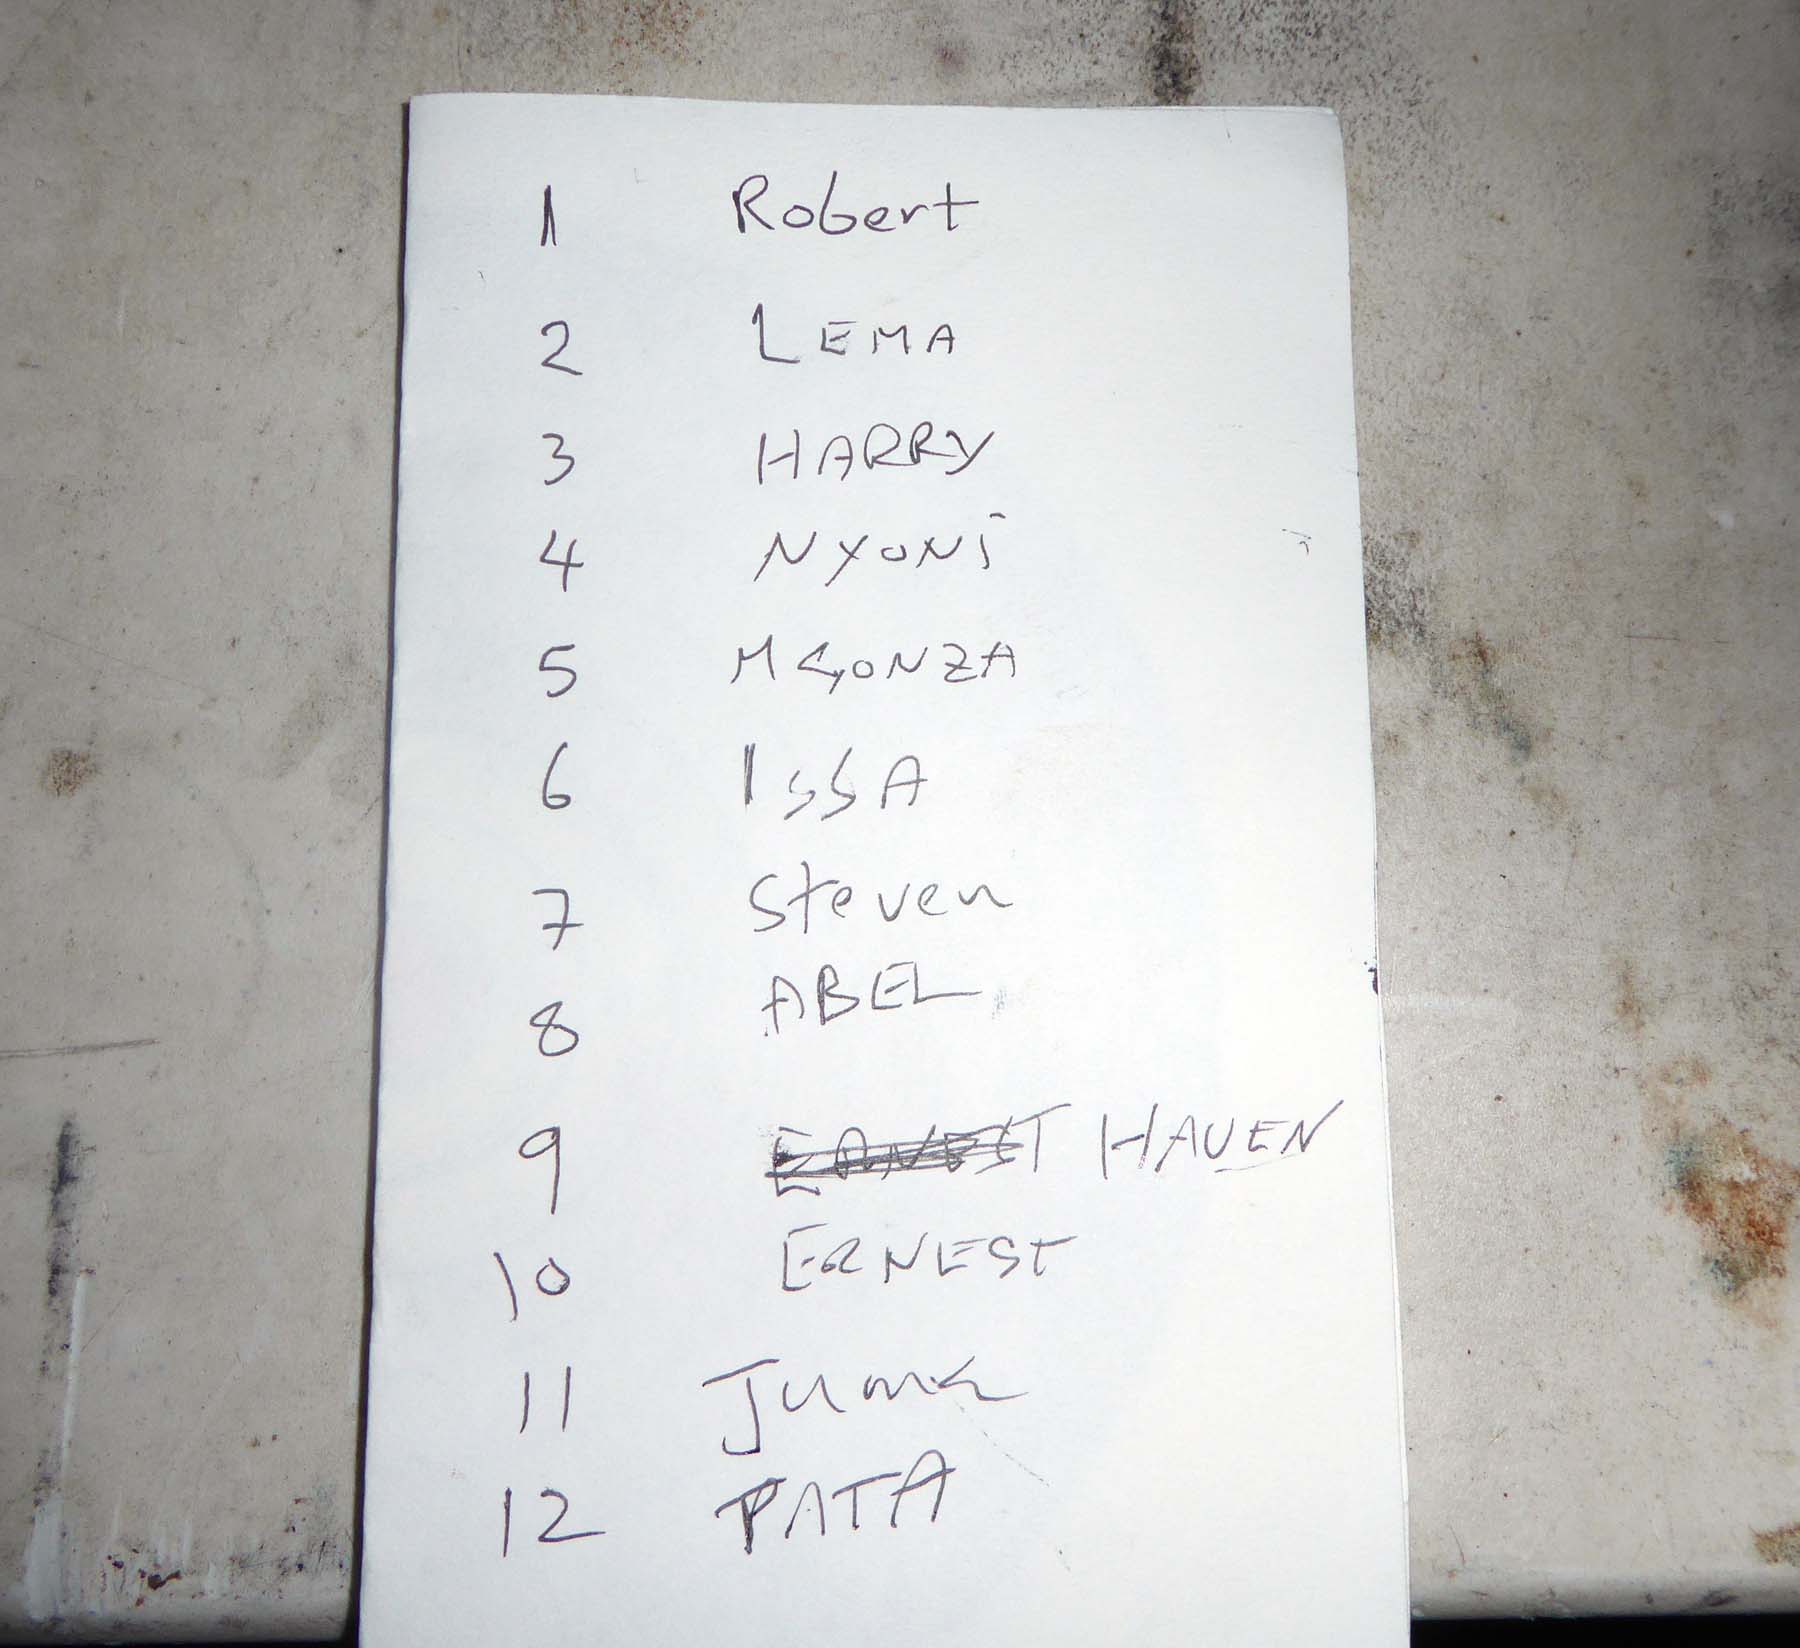 1 Robert
2 LEMA
3 HARRY
4 NYONi
5 MGONZA
6 ISSA
7 Steven
8 ABEL
9 HAVEN
10 ERNEST
11 Juma
12 PATA